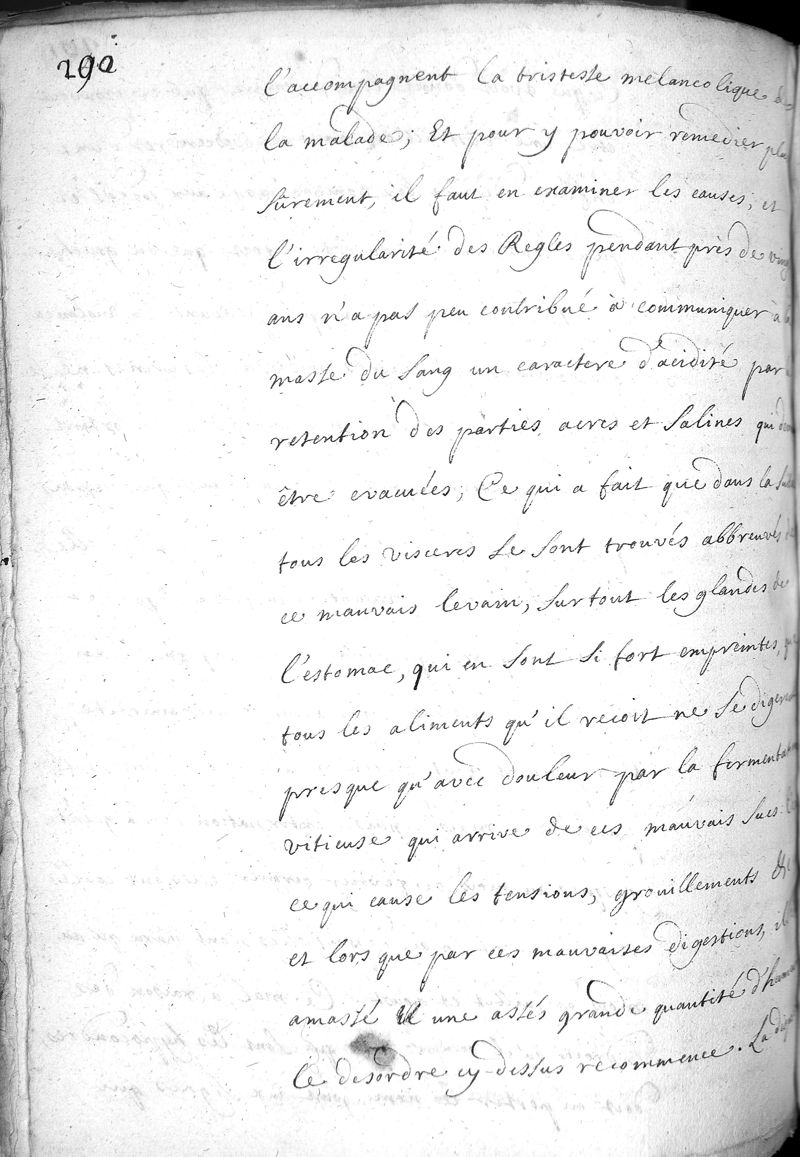 290
l'accompagnent la tristesse melancolique de
la malade; Et pour y pouvoir remedier plus
sûrement, il faut en examiner les causes; et
l'irregularité des Regles pendant près de vingt
ans n'a pas peu contribué à communiquer à la
masse du sang un caractere d'acidité par
retention des parties acres et salines qui
être evacuées; Ce qui a fait que dans la suite
tous les visceres se sont trouvés abbreuvés de
ce mauvais levain, surtout les glandes de
l'estomac, qui en sont si fort empreintes, que
tous les aliments qu'il recoit ne se digerent
presque qu'avec douleur par la fermentation
vitieuse qui arrive de ces mauvais sucs
ce qui cause les tensions, grouillements &c
et lors que par ces mauvaises digestions, il
amassé une assés grande quantité d'humeurs
le desordre cy-dessus recommence. La